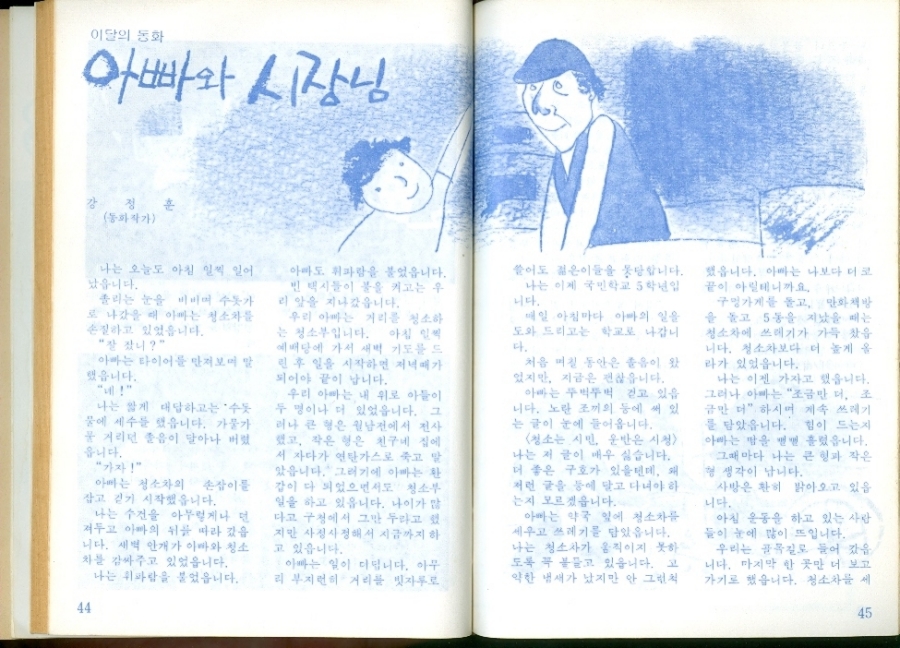 이달의 동화
아빠와 시장님
강 정 훈
(동화작가)
나는 오늘도 아침 일찍 일어
났습니다.
졸리는 눈을 비비며 수돗가
로 나갔을 때 아빠는 청소차를
손질하고 있었습니다.
“잘 잤니?”
아빠는 타이어를 만져보며 말
했습니다.
“네!”
나는 짧게 대답하고는 수돗
물에 세수를 했습니다. 가물가
물 거리던 졸음이 달아나 버렸
습니다.
“가자!”
아빠는 청소차의 손잡이를
잡고 걷기 시작했습니다.
나는 수건을 아무렇게나 던
져두고 아빠의 뒤를 따라 갔습
니다. 새벽 안개가 아빠와 청소
차를 감싸주고 있었습니다.
나는 휘파람을 불었읍니다.
아빠도 휘파람을 불었읍니다.
빈 택시들이 불을 켜고는 우
리 앞을 지나갔습니다.
우리 아빠는 거리를 청소하
는 청소부입니다. 아침 일찍
예배당에 가서 새벽 기도를 드
린 후 일을 시작하면 저녁때가
되어야 끝이 납니다.
우리 아빠는 내 위로 아들이
두 명이나 더 있었습니다. 그
러나 큰 형은 월남전에서 전사
했고, 작은 형은 친구네 집에
서 자다가 연탄가스로 죽고 말
았습니다. 그러기에 아빠는 환
갑이 다 되었으면서도 청소부
일을 하고 있습니다. 나이가 많
다고 구청에서 그만 두라고 했
지만 사정사정해서 지금까지 하
고 있읍니다.
아빠는 일이 더딥니다. 아무
리 부지런히 거리를 빗자루로
쓸어도 젊은이들을 못당합니다.
나는 이제 국민학교 5학년입
니다.
매일 아침마다 아빠의 일을
도와 드리고는 학교로 나갑니
다.
처음 며칠 동안은 졸음이 왔
었지만, 지금은 괜찮습니다.
아빠는 뚜벅뚜벅 걷고 있읍
니다. 노란 조끼의 등에 써 있
는 글이 눈에 들어옵니다.
〈청소는 시민, 운반은 시청〉
나는 저 글이 매우 싫습니다.
더 좋은 구호가 있을텐데, 왜
저런 글을 등에 달고 다녀야 하
는지 모르겠읍니다.
아빠는 약국 앞에 청소차를
세우고 쓰레기를 담았읍니다.
나는 청소차가 움직이지 못하
도록 꼭 붙들고 있읍니다. 고
약한 냄새가 났지만 안 그런척
했읍니다. 아빠는 나보다 더 코
끝이 아릴테니까요.
구멍가게를 돌고, 만화책방
을 돌고 5동을 지났을 때는
청소차에 쓰레기가 가득 찼읍
니다. 청소차보다 더 높게 올
라가 있었읍니다.
나는 이젠 가자고 했읍니다.
그러나 아빠는 “조금만 더, 조
금만 더” 하시며 계속 쓰레기
를 담았읍니다. 힘이 드는지
아빠는 땀을 뻘뻘 흘렸읍니다.
그때마다 나는 큰 형과 작은
형 생각이 납니다.
사방은 환히 밝아오고 있읍
니다.
아침 운동을 하고 있는 사람
들이 눈에 많이 뜨입니다.
우리는 골목길로 들어 갔읍
니다. 마지막 한 곳만 더 보고
가기로 했읍니다. 청소차를 세
44
45